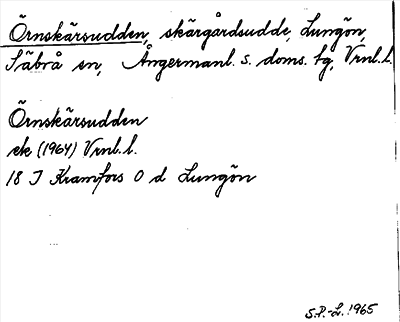 Örnskärsudden, skärgårdsudde, Lungön,
Säbrå sn, Ångermanl. s. doms. tg, Vrnl. l.
Örnskärsudden
ek (1964) Vrnl. l.
18 I Kramfors 0 d Lungön
S.P.-L. 1965